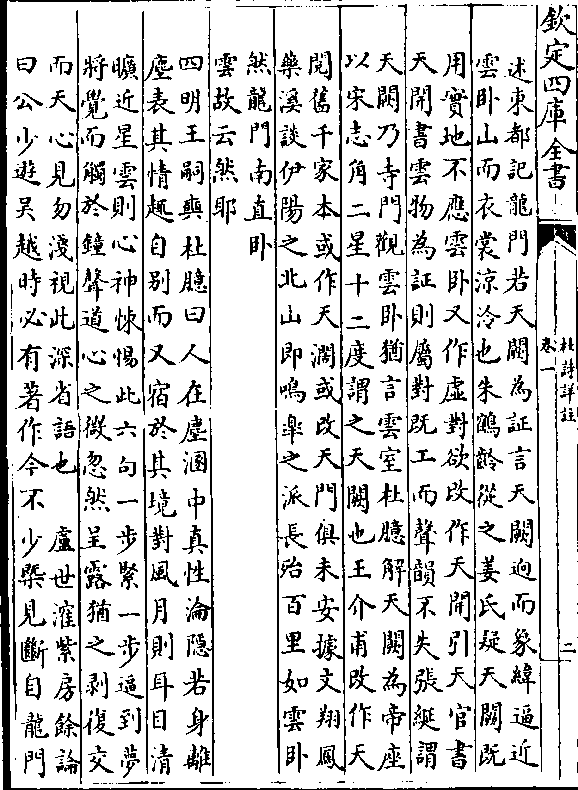 欽定四庫全書
杜詩詳註
卷一
二
述東都記龍門若天闕為証言天闕迥而象緯逼近
雲卧山而衣裳涼冷也朱鶴齡從之姜氏疑天闕既
用實地不應雲卧又作虛對欲改作天開引天官書
天開書雲物為証則屬對既工而聲韻不失張綖謂
天闕乃寺門觀雲卧猶言雲室杜臆解天闕為帝座
以宋志角二星十二度謂之天闕也王介甫改作天
閱舊千家本或作天濶或改天門俱未安據文翔鳳
藥溪談伊陽之北山即鳴臯之派長殆百里如雲卧
然龍門南直卧
雲故云然耶
四明王嗣奭杜臆曰人在塵溷中真性淪隠若身離
塵表其情趣自别而又宿於其境對風月則耳目清
曠近星雲則心神悚惕此六句一步緊一步逼到夢
將覺而觸於鐘聲道心之微忽然呈露猶之剥復交
而天心見勿淺視此深省語也 盧世㴶紫房餘論
曰公少遊吳越時必有著作今不少槩見斷自龍門